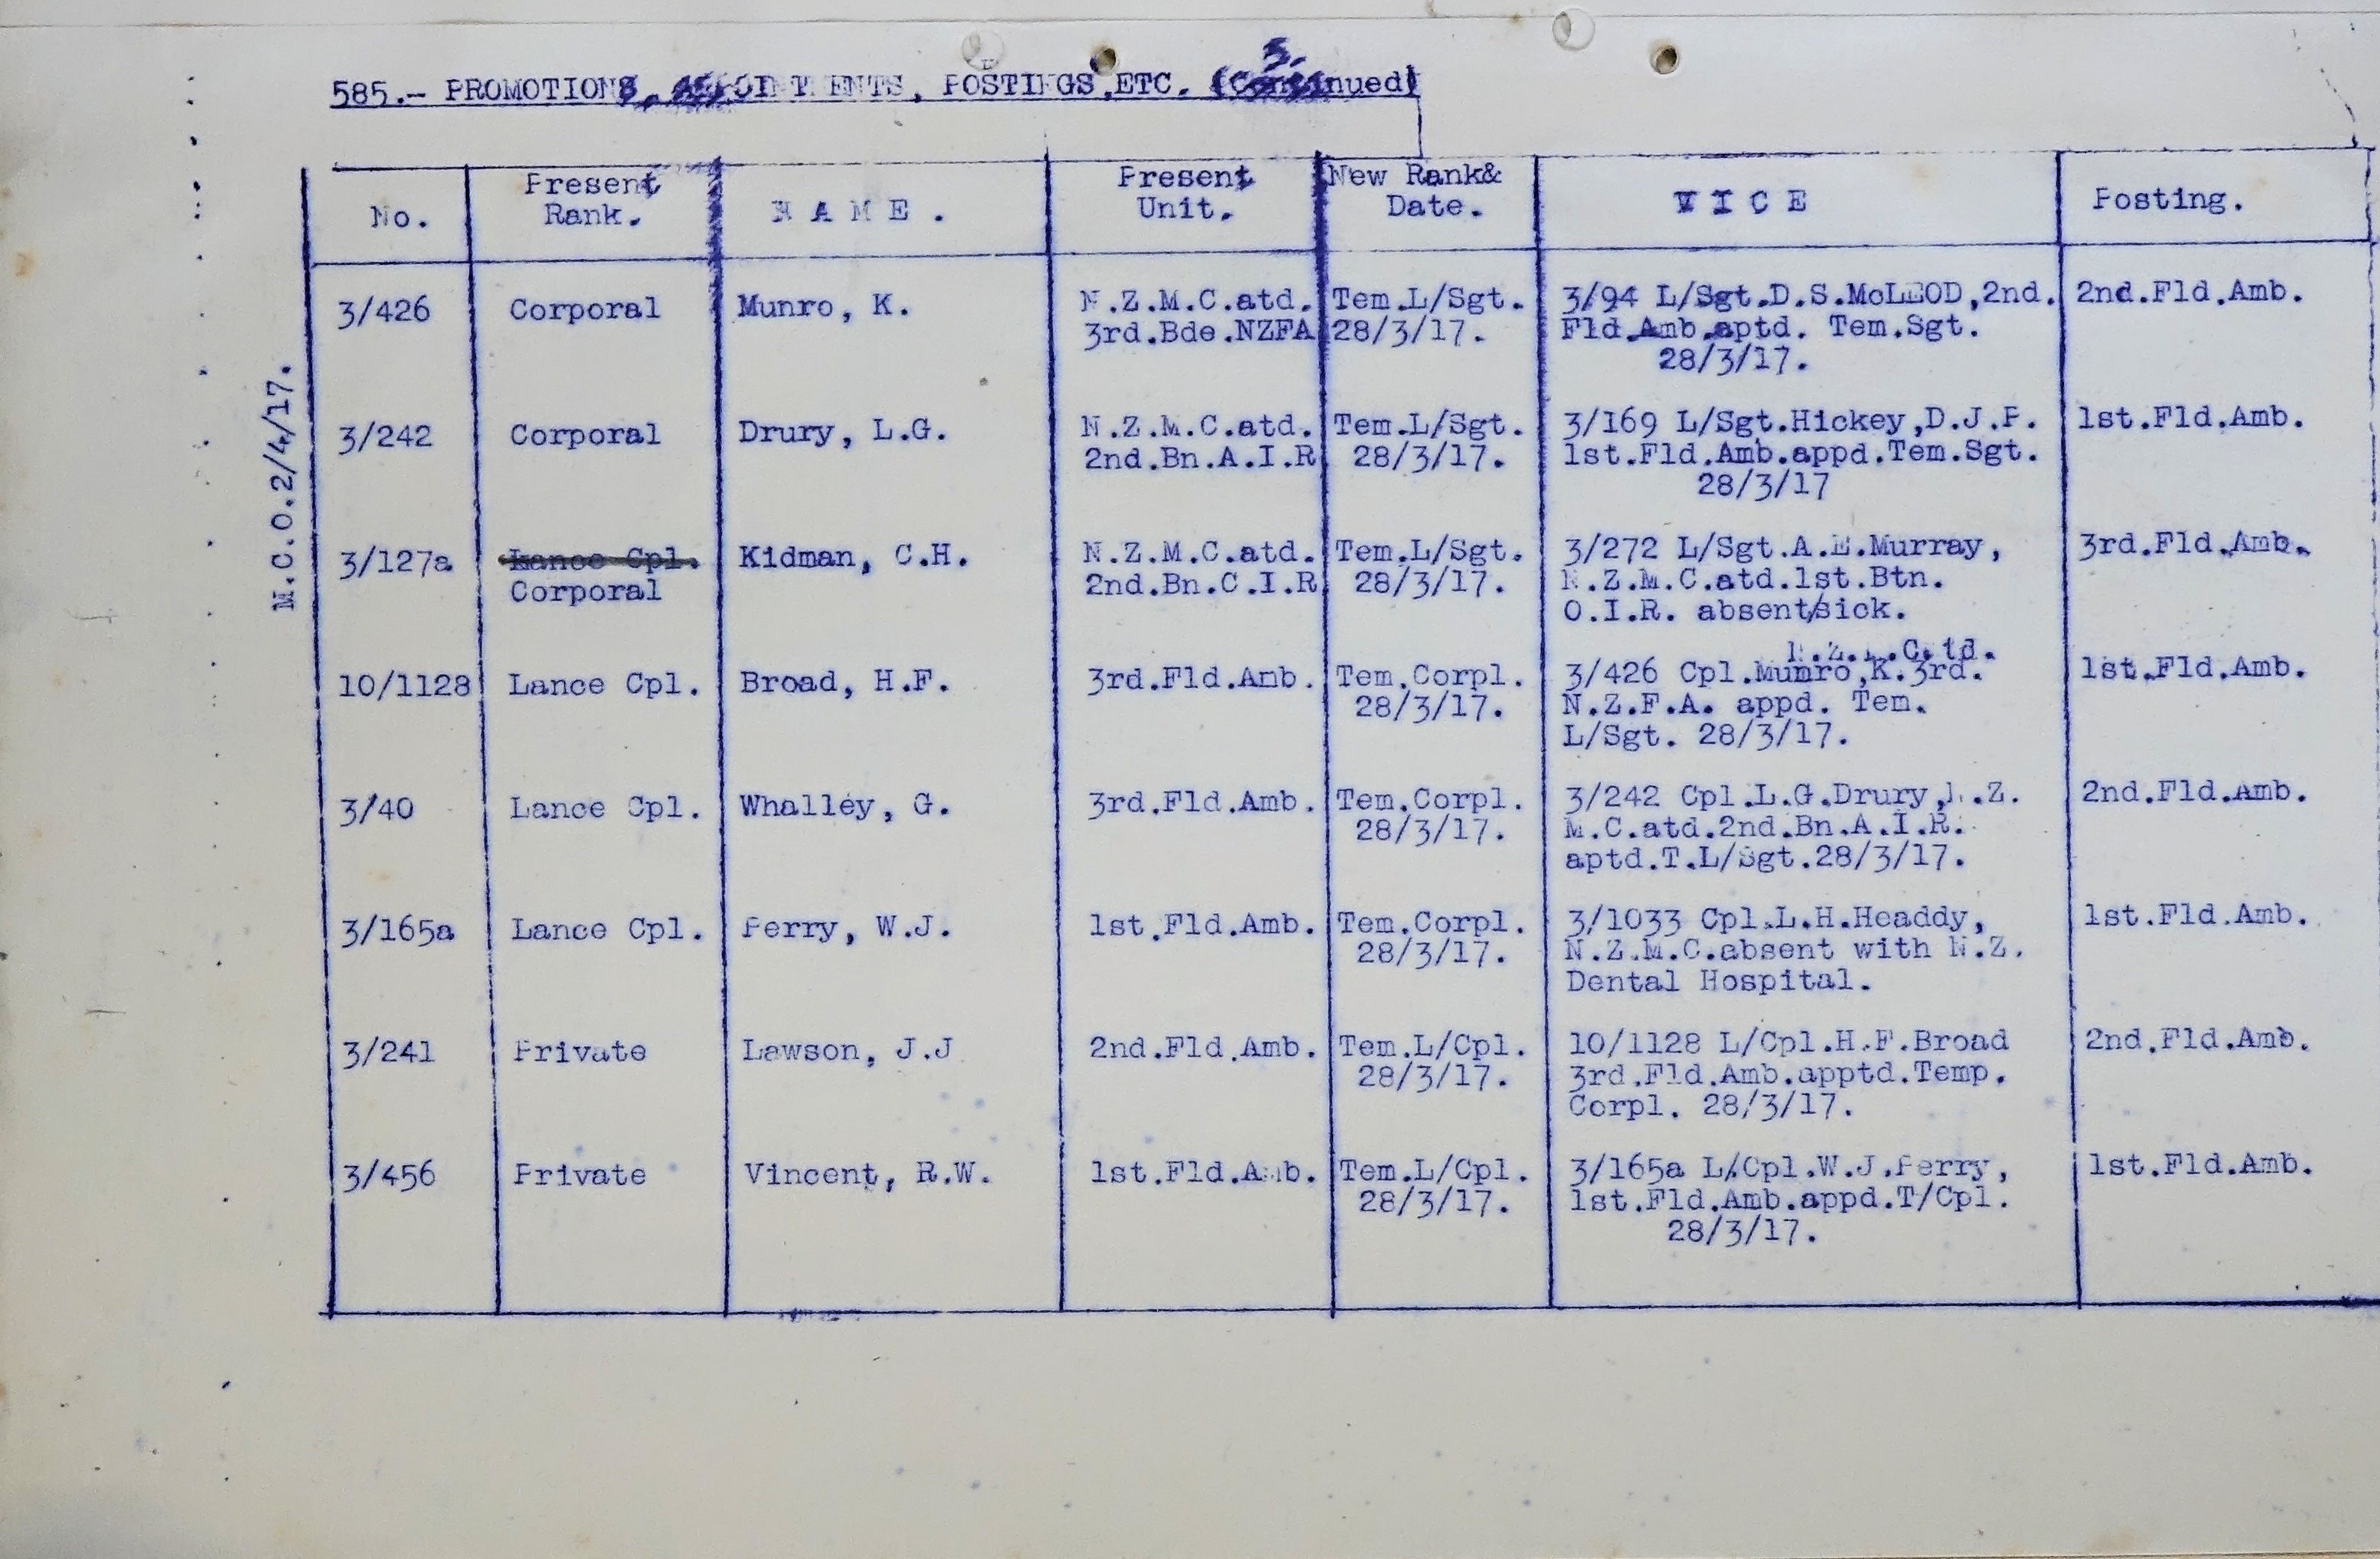 3.
585.- PROMOTIONS, APPOINTMENTS, POSTINGS,ETC. (Continued)
M.C.O.2/4/17.
No.
Present
Rank.
N A M E .
Present
Unit.
New Rank&
Date.
V I C E
Posting.
3/426
Corporal
Munro, K.
N.Z.M.C.atd.
3rd.Bde.NZFA
Tem.L/Sgt.
28/3/17.
3/94 L/Sgt.D.S.McLEOD,2nd.
Fld.Amb.aptd. Tem.Sgt.
28/3/17.
2nd.Fld.Amb.
3/242
Corporal
Drury, L.G.
N.Z.M.C.atd.
2nd.Bn.A.I.R
Tem.L/Sgt.
28/3/17.
3/169 L/Sgt.Hickey,D.J.P.
1st.Fld.Amb.appd.Tem.Sgt.
28/3/17
1st.Fld.Amb.
3/127a
Lance Cpl.
Corporal
Kidman, C.H.
N.Z.M.C.atd.
2nd.Bn.C.I.R
Tem.L/Sgt.
28/3/17.
3/272 L/Sgt.A.E.Murray,
N.Z.M.C.atd.1st.Btn.
O.I.R. absent/sick.
3rd.Fld.Amb.
10/1128
Lance Cpl.
Broad, H.F.
3rd.Fld.Amb.
Tem.Corpl.
28/3/17.
3/426 Cpl.Munro,K.3rd.
N.Z.F.A. appd. Tem.
L/Sgt. 28/3/17.
1st.Fld.Amb.
3/40
Lance Cpl.
Whalley, G.
3rd.Fld.Amb.
Tem.Corpl.
28/3/17.
3/242 Cpl.L.G.Drury,N.Z.
M.C.atd.2nd.Bn.A.I.R.
aptd.T.L/Sgt.28/3/17.
2nd.Fld.Amb.
3/165a
Lance Cpl.
Perry, W.J.
1st.Fld.Amb.
Tem.Corpl.
28/3/17.
3/1033 Cpl.L.H.Headdy,
N.Z.M.C.absent with N.Z.
Dental Hospital.
1st.Fld.Amb.
3/241
Private
Lawson, J.J
2nd.Fld.Amb.
Tem.L/Cpl.
28/3/17.
10/1128 L/Cpl.H.F.Broad
3rd.Fld.Amb.apptd.Temp.
Corpl. 28/3/17.
2nd.Fld.Amb.
3/456
Private
Vincent, R.W.
1st.Fld.Amb.
Tem.L/Cpl.
28/3/17.
3/165a L/Cpl.W.J.Perry,
1st.Fld.Amb.appd.T/Cpl.
28/3/17.
1st.Fld.Amb.